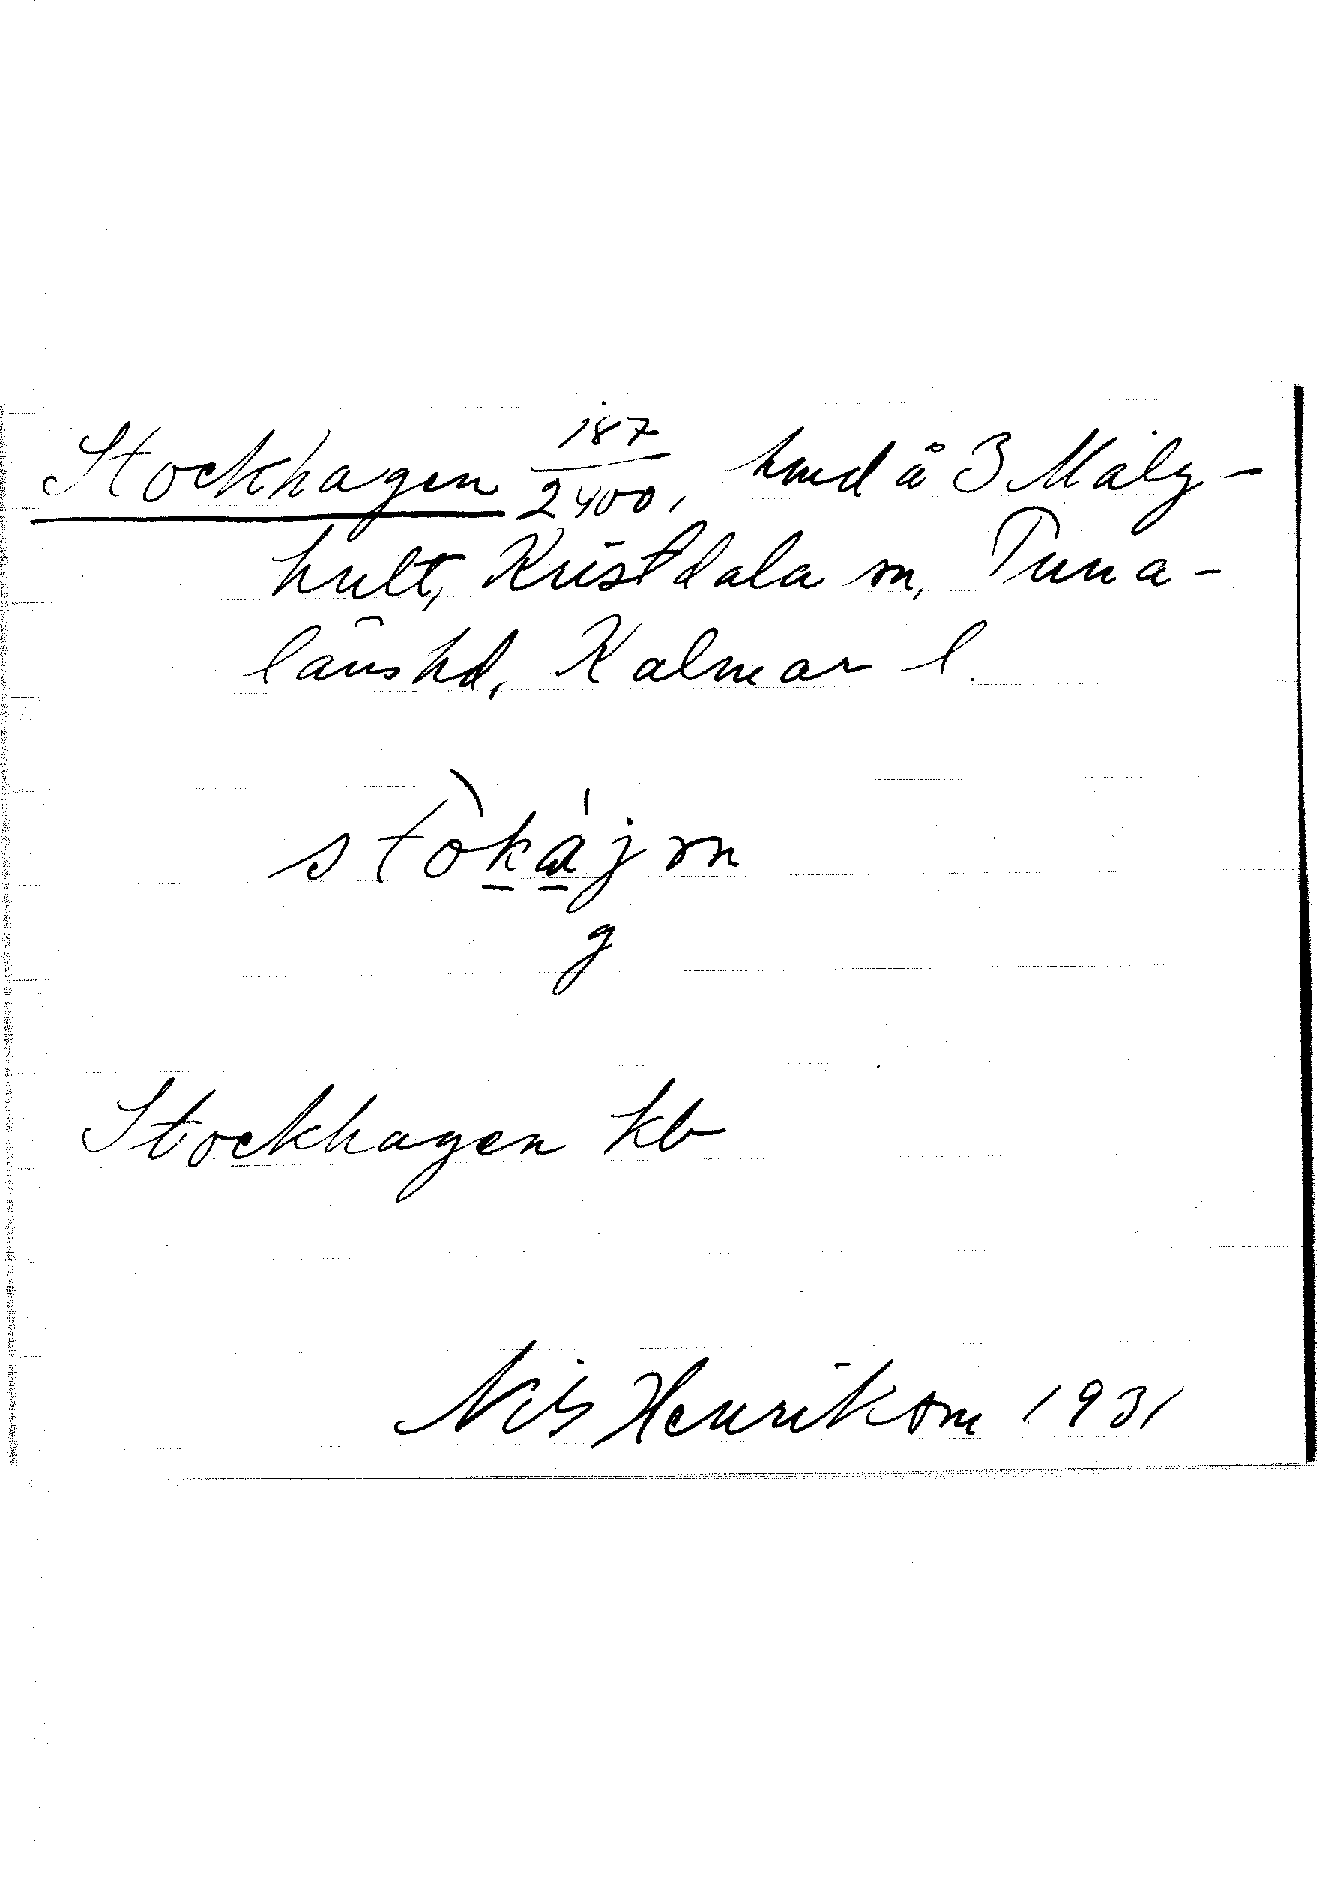 Stockhagen 187/2400, hmd å 3 Målg-
hult, Kristdala sn, Tuna-
länshd, Kalmar l.
stòkájsn
g
Stockhagen kb
Nils Henrikson 1931